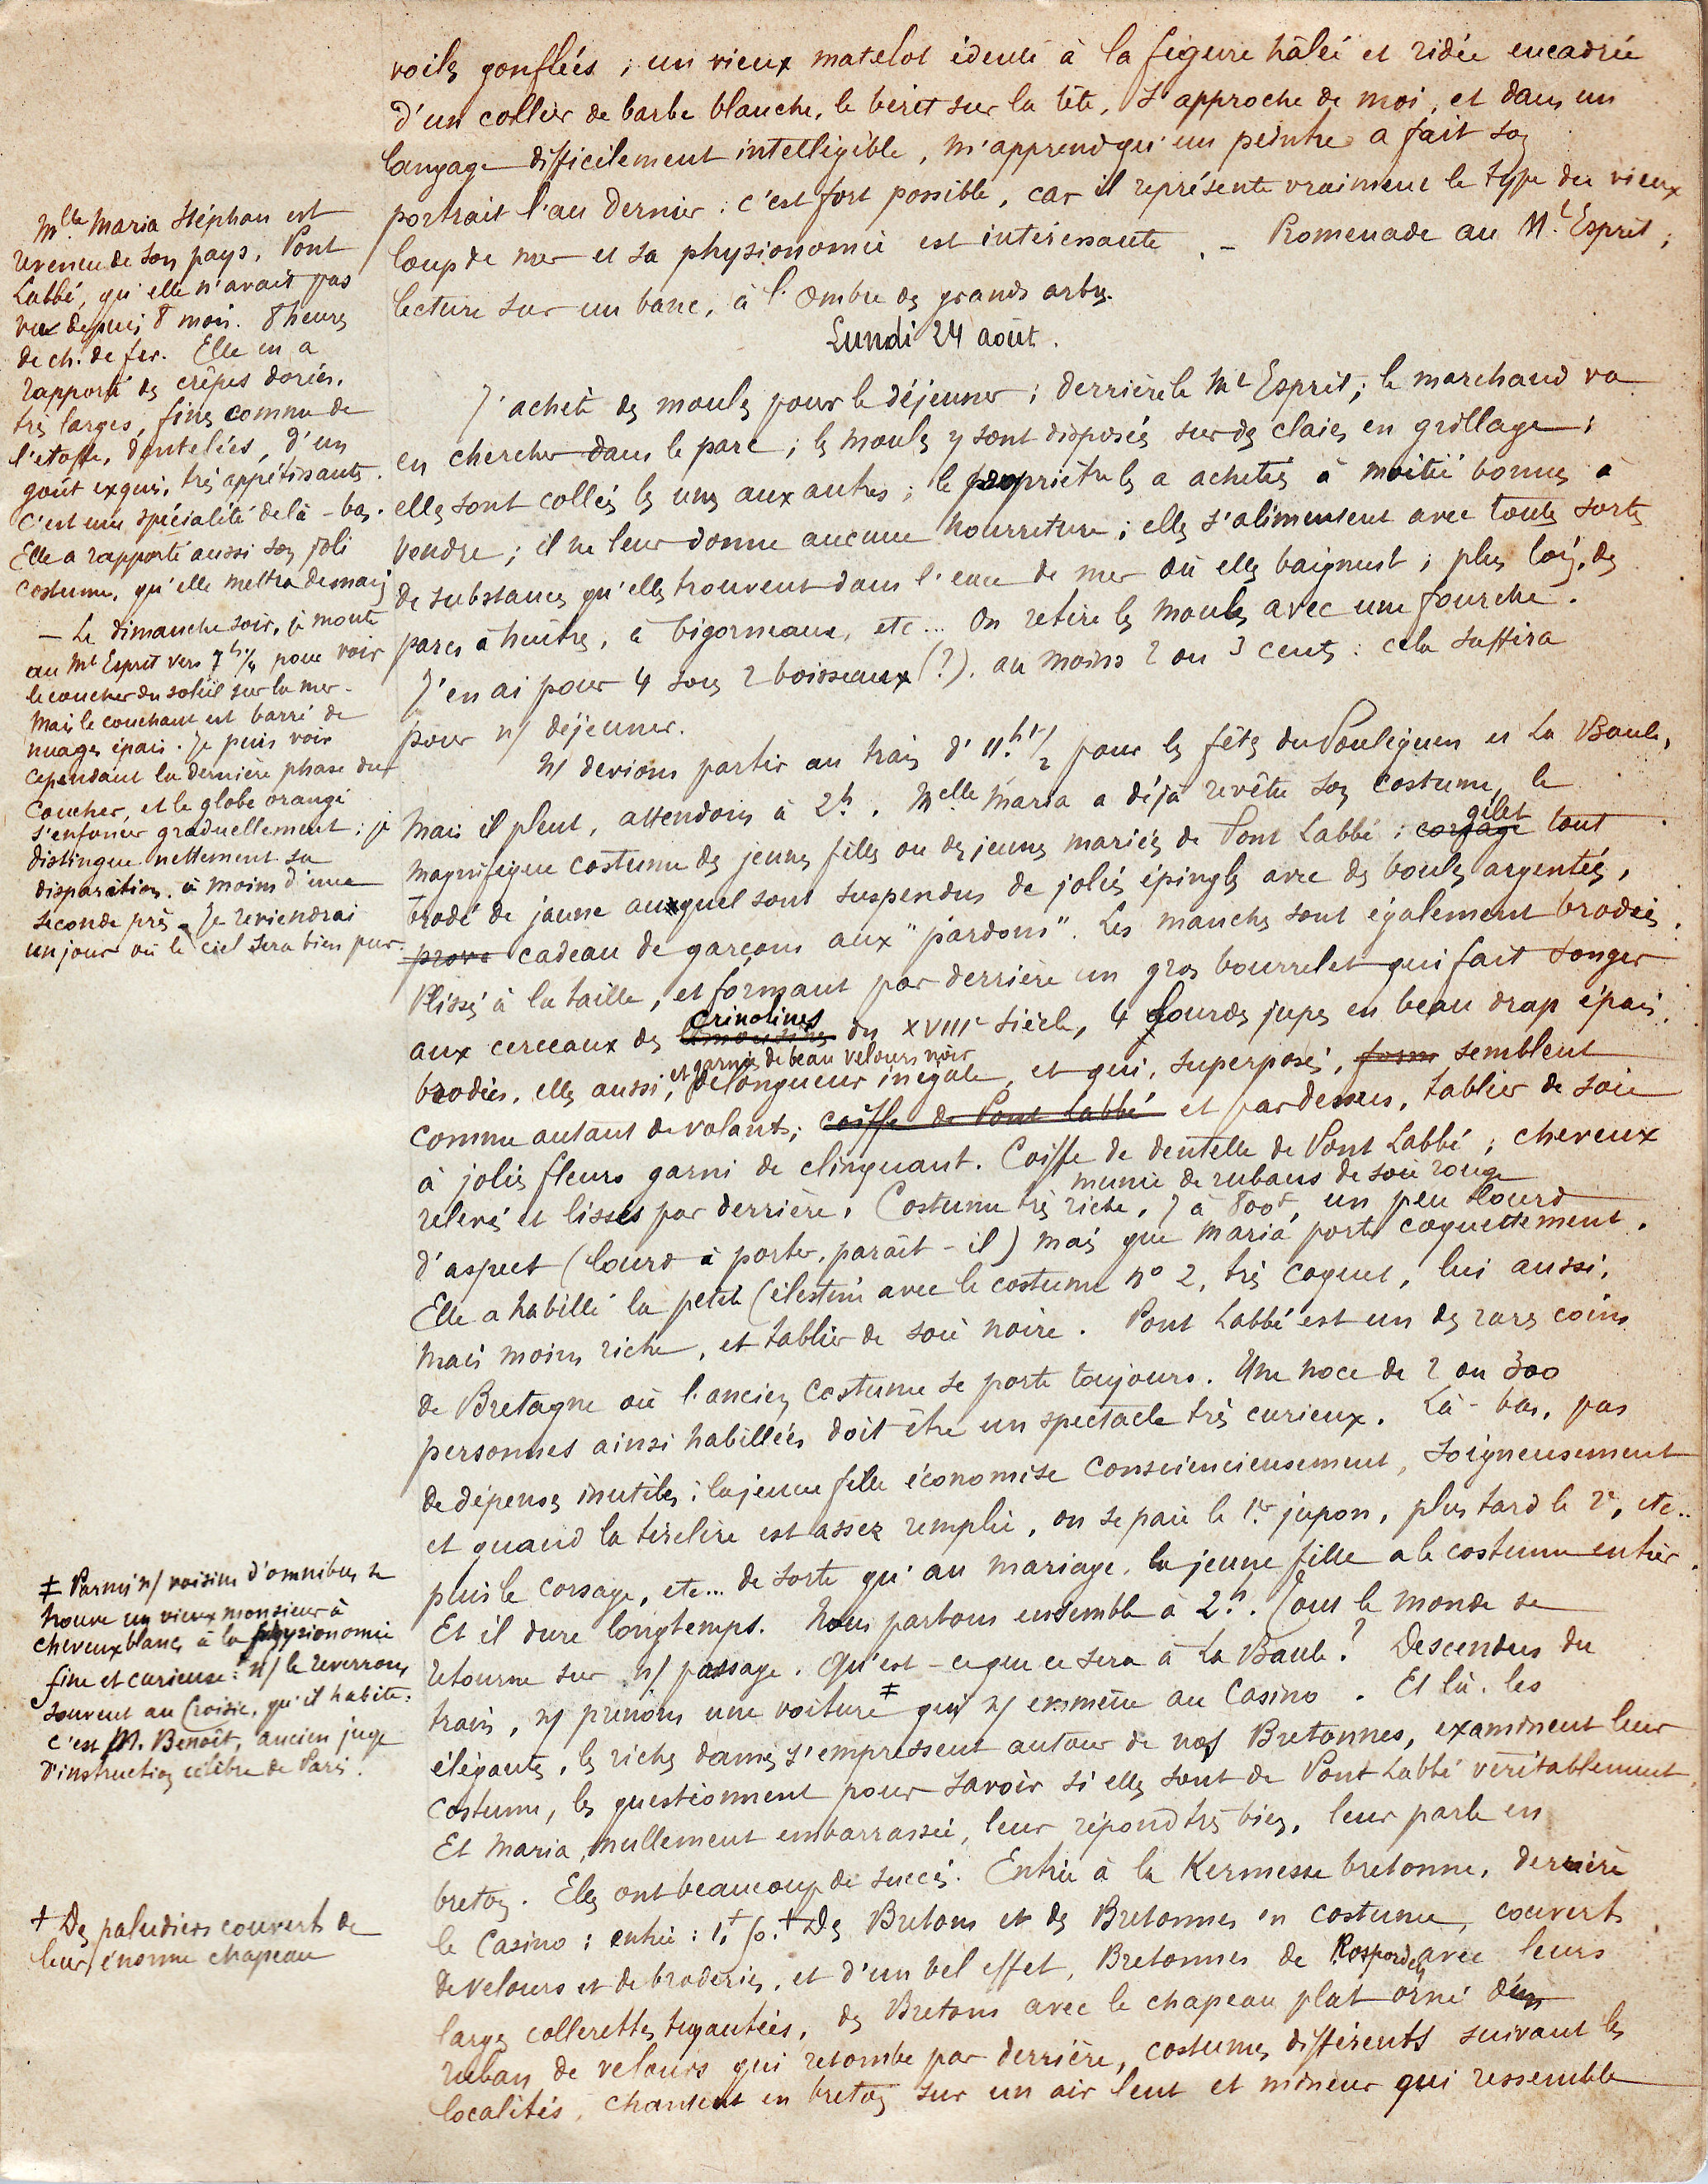 voiles gonflées ; un vieux matelot édenté à la figure hâlée et ridée encadrée
d'un collier de barbe blanche, le béret sur la tête, s'approche de moi, et dans un
langage difficilement intelligible, m'apprend qu'un peintre a fait son
portrait l'an dernier : c'est fort possible, car il représente vraiment le type du vieux
loup de mer et sa physionomie est intéressante. – Promenade au Mt Esprit ;
lecture sur un banc, à l'ombre des grands arbres.
Lundi 24 août.
J'achète des moules pour le déjeuner ; derrière le Mt Esprit ; le marchand va
en chercher dans le parc ; les moules y sont disposées sur des claies en grillage ;
elles sont collées les unes aux autres ; le propriétre les a achetées à moitié bonnes à
vendre ; il ne leur donne aucune nourriture ; elles s'alimentent avec toutes sortes
de substances qu'elles trouvent dans l'eau de mer où elles baignent ; plus loin, des
parcs à huîtres, à bigorneaux, etc... On retire les moules avec une fourche.
J'en ai pour 4 sous 2 boisseaux (?). au moins 2 ou 3 cents : cela suffira
pour n/ déjeuner.
N/ devions partir au train d'11h 1/2 pour les fêtes du Pouliguen et La Baule,
mais il pleut, attendons à 2h. Melle Maria a déjà revêtu son costume, le
magnifique costume des jeunes filles ou des jeunes mariées de Pont Labbé : corsage gilet tout
brodé de jaune auquel sont suspendus de jolies épingles avec des boules argentées,
prove cadeau de garçons aux "pardons". Les manches sont également brodées.
Plissé à la taille, et formant par derrière un gros bourrelet qui fait songer
aux cerceaux des crinolines du XVIIIe siècle, 4 lourdes jupes en beau drap épais,
brodées, elles aussi, et garnies de beau velours noir, de longueur inégale, et qui, superposées, form semblent
comme autant de volants ; coiffe de Pont Labbé et par dessus, tablier de soie
à jolies fleurs garni de clinquant. Coiffe de dentelle de Pont Labbé ; cheveux
munie de rubans de soie rouge
relevés et lissés par derrière. Costume très riche, 7 à 800f, un peu lourd
d'aspect (lourd à porter, paraît-il) mais que Maria porte coquettement.
Elle a habillé la petite Célestine avec le costume no 2, très coquet, lui aussi,
mais moins riche, et tablier de soie noire. Pont Labbé est un des rares coins
de Bretagne où l'ancien costume se porte toujours. Une noce de 2 ou 300
personnes ainsi habillées doit être un spectacle très curieux. Là-bas, pas
de dépenses inutiles ; la jeune fille économise consciencieusement, soigneusement
et quand la tirelire est assez remplie, on se paie le 1er jupon, plus tard le 2e, etc..
puis le corsage, etc... de sorte qu'au mariage, la jeune fille a le costume entier.
Et il dure longtemps. Nous partons ensemble à 2h. Tout le monde se
retourne sur n/ passage. Qu'est-ce que ce sera à La Baule ? Descendus du
train, n/ prenons une voiture ‡ qui n/ emmène au Casino. Et là, les
élégantes, les riches dames s'empressent autour de nos Bretonnes, examinent leur
costume, les questionnent pour savoir si elles sont de Pont Labbé véritablement,
Et Maria, nullement embarrassée, leur répond très bien, leur parle en
breton. Elles ont beaucoup de succès. Entrée à la Kermesse bretonne, derrière
le Casino : entrée : 1f,50. † Des Bretons et des Bretonnes en costume, couverts
de velours et de broderies, et d'un bel effet, Bretonnes de Rosporden avec leurs
larges collerettes tuyautées, des Bretons avec le chapeau plat orné d'un
ruban de velours qui retombe par derrière, costumes différents suivant les
localités, chantent en breton sur un air lent et mineur qui ressemble
Mlle Maria Stéphan est
revenue de son pays, Pont
Labbé, qu'elle n'avait pas
vu depuis 8 mois. 8 heures
de ch. de fer. Elle en a
rapporté des crêpes dorées,
très larges, fines comme de
l'étoffe, dentelées, d'un
goût exquis, très appétissantes.
C'est une spécialité de là-bas.
Elle a rapporté aussi son joli
costume, qu'elle mettra demain
– Le dimanche soir, je monte
au Mt Esprit vers 7h 1/4 pour voir
le coucher du soleil sur la mer.
Mais le couchant est barré de
nuages épais. Je puis voir
cependant la dernière phase du
coucher, et le globe orangé
s'enfoncer graduellement ; je
distingue nettement sa
disparition, à moins d'une
seconde près. Je reviendrai
un jour où le ciel sera bien pur.
‡ Parmi n/ voisins d'omnibus se
trouve un vieux monsieur à
cheveux blancs à la physionomie
fine et curieuse : n/ le reverrons
souvent au Croisic, qu'il habite :
c'est M. Benoît, ancien juge
d'instruction célèbre de Paris.
† Des paludiers couverts de
leur énorme chapeau